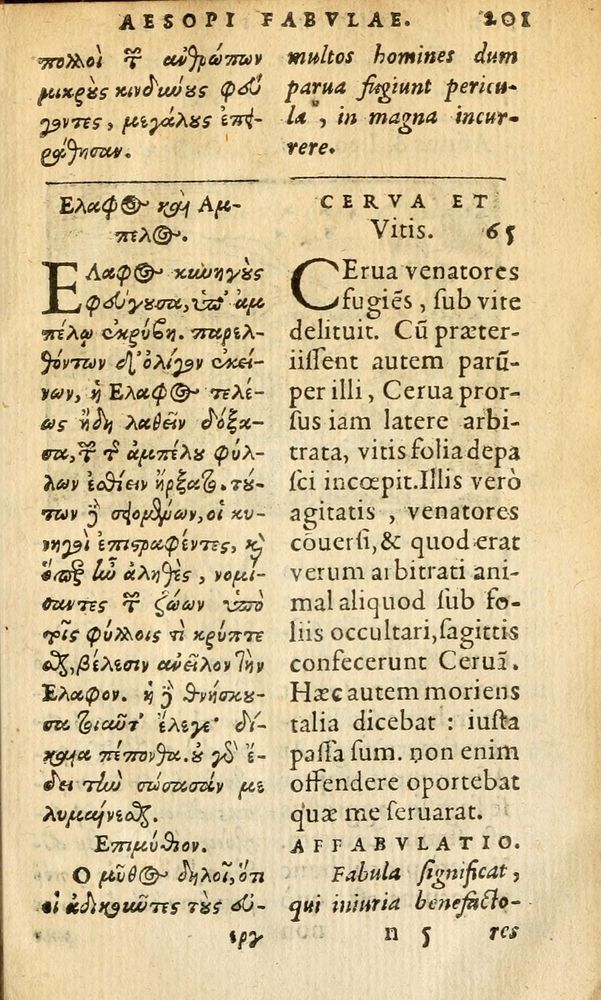 AESOPI FABVLAE. 201
πολλοὶ τῶν ἀνθρώπων
μικροὺς κινδύνους φεύ
γοντες, μεγάλοις ἐπει-
ράθησαν.
Ελαφος καὶ Αμ-
πελος.
ΕΛαφος κυνηγοὺς
φεύγουσα, ὑπ' ἀμ
πέλῳ ἐκρύβη. παρελ-
θόντων δ' ὀλίγον ἐκεί-
νων, ἡ Ελαφος τελέ-
ως ἤδη λαθεῖν δόξα-
σα, τῶν τῆς ἀμπέλου φύλ-
λων ἐσθίειν ἤρξατο. τού-
των δὲ σειομένων, οἱ κυ-
νηγοὶ ἐπιστραφέντες, καὶ
ὅπερ ἦν ἀληθὲς, νομί-
σαντες τῶν ζώων ὑπὸ
τοῖς φύλλοις τὶ κρύπτε
σθαι, βέλεσιν ἀνεῖλον τὴν
Ελαφον. ἡ δὲ θνήσκου-
σα τοιαῦτ' ἔλεγε· δί-
καια πέπονθα. οὐ γὰρ ἔ-
δει τὴν σώσασάν με
λυμαίνεσθαι.
Επιμύθιον.
Ο μῦθος δηλοῖ, ὅτι
οἱ ἀδικοῦντες τοὺς εὐ-
εργ
multos homines dum
parua fugiunt pericu-
la, in magna incur-
rere.
CERVA ET
Vitis. 65
CErua venatores
fugiẽs, sub vite
delituit. Cũ præter-
iissent autem parũ-
per illi, Cerua pror-
sus iam latere arbi-
trata, vitis folia depa
sci incœpit. Illis verò
agitatis, venatores
cõuersi, & quod erat
verum arbitrati ani-
mal aliquod sub fo-
liis occultari, sagittis
confecerunt Ceruã.
Hæc autem moriens
talia dicebat : iusta
passa sum. non enim
offendere oportebat
quæ me seruarat.
AFFABVLATIO.
Fabula significat,
qui iniuria benefacto-
n 5 res